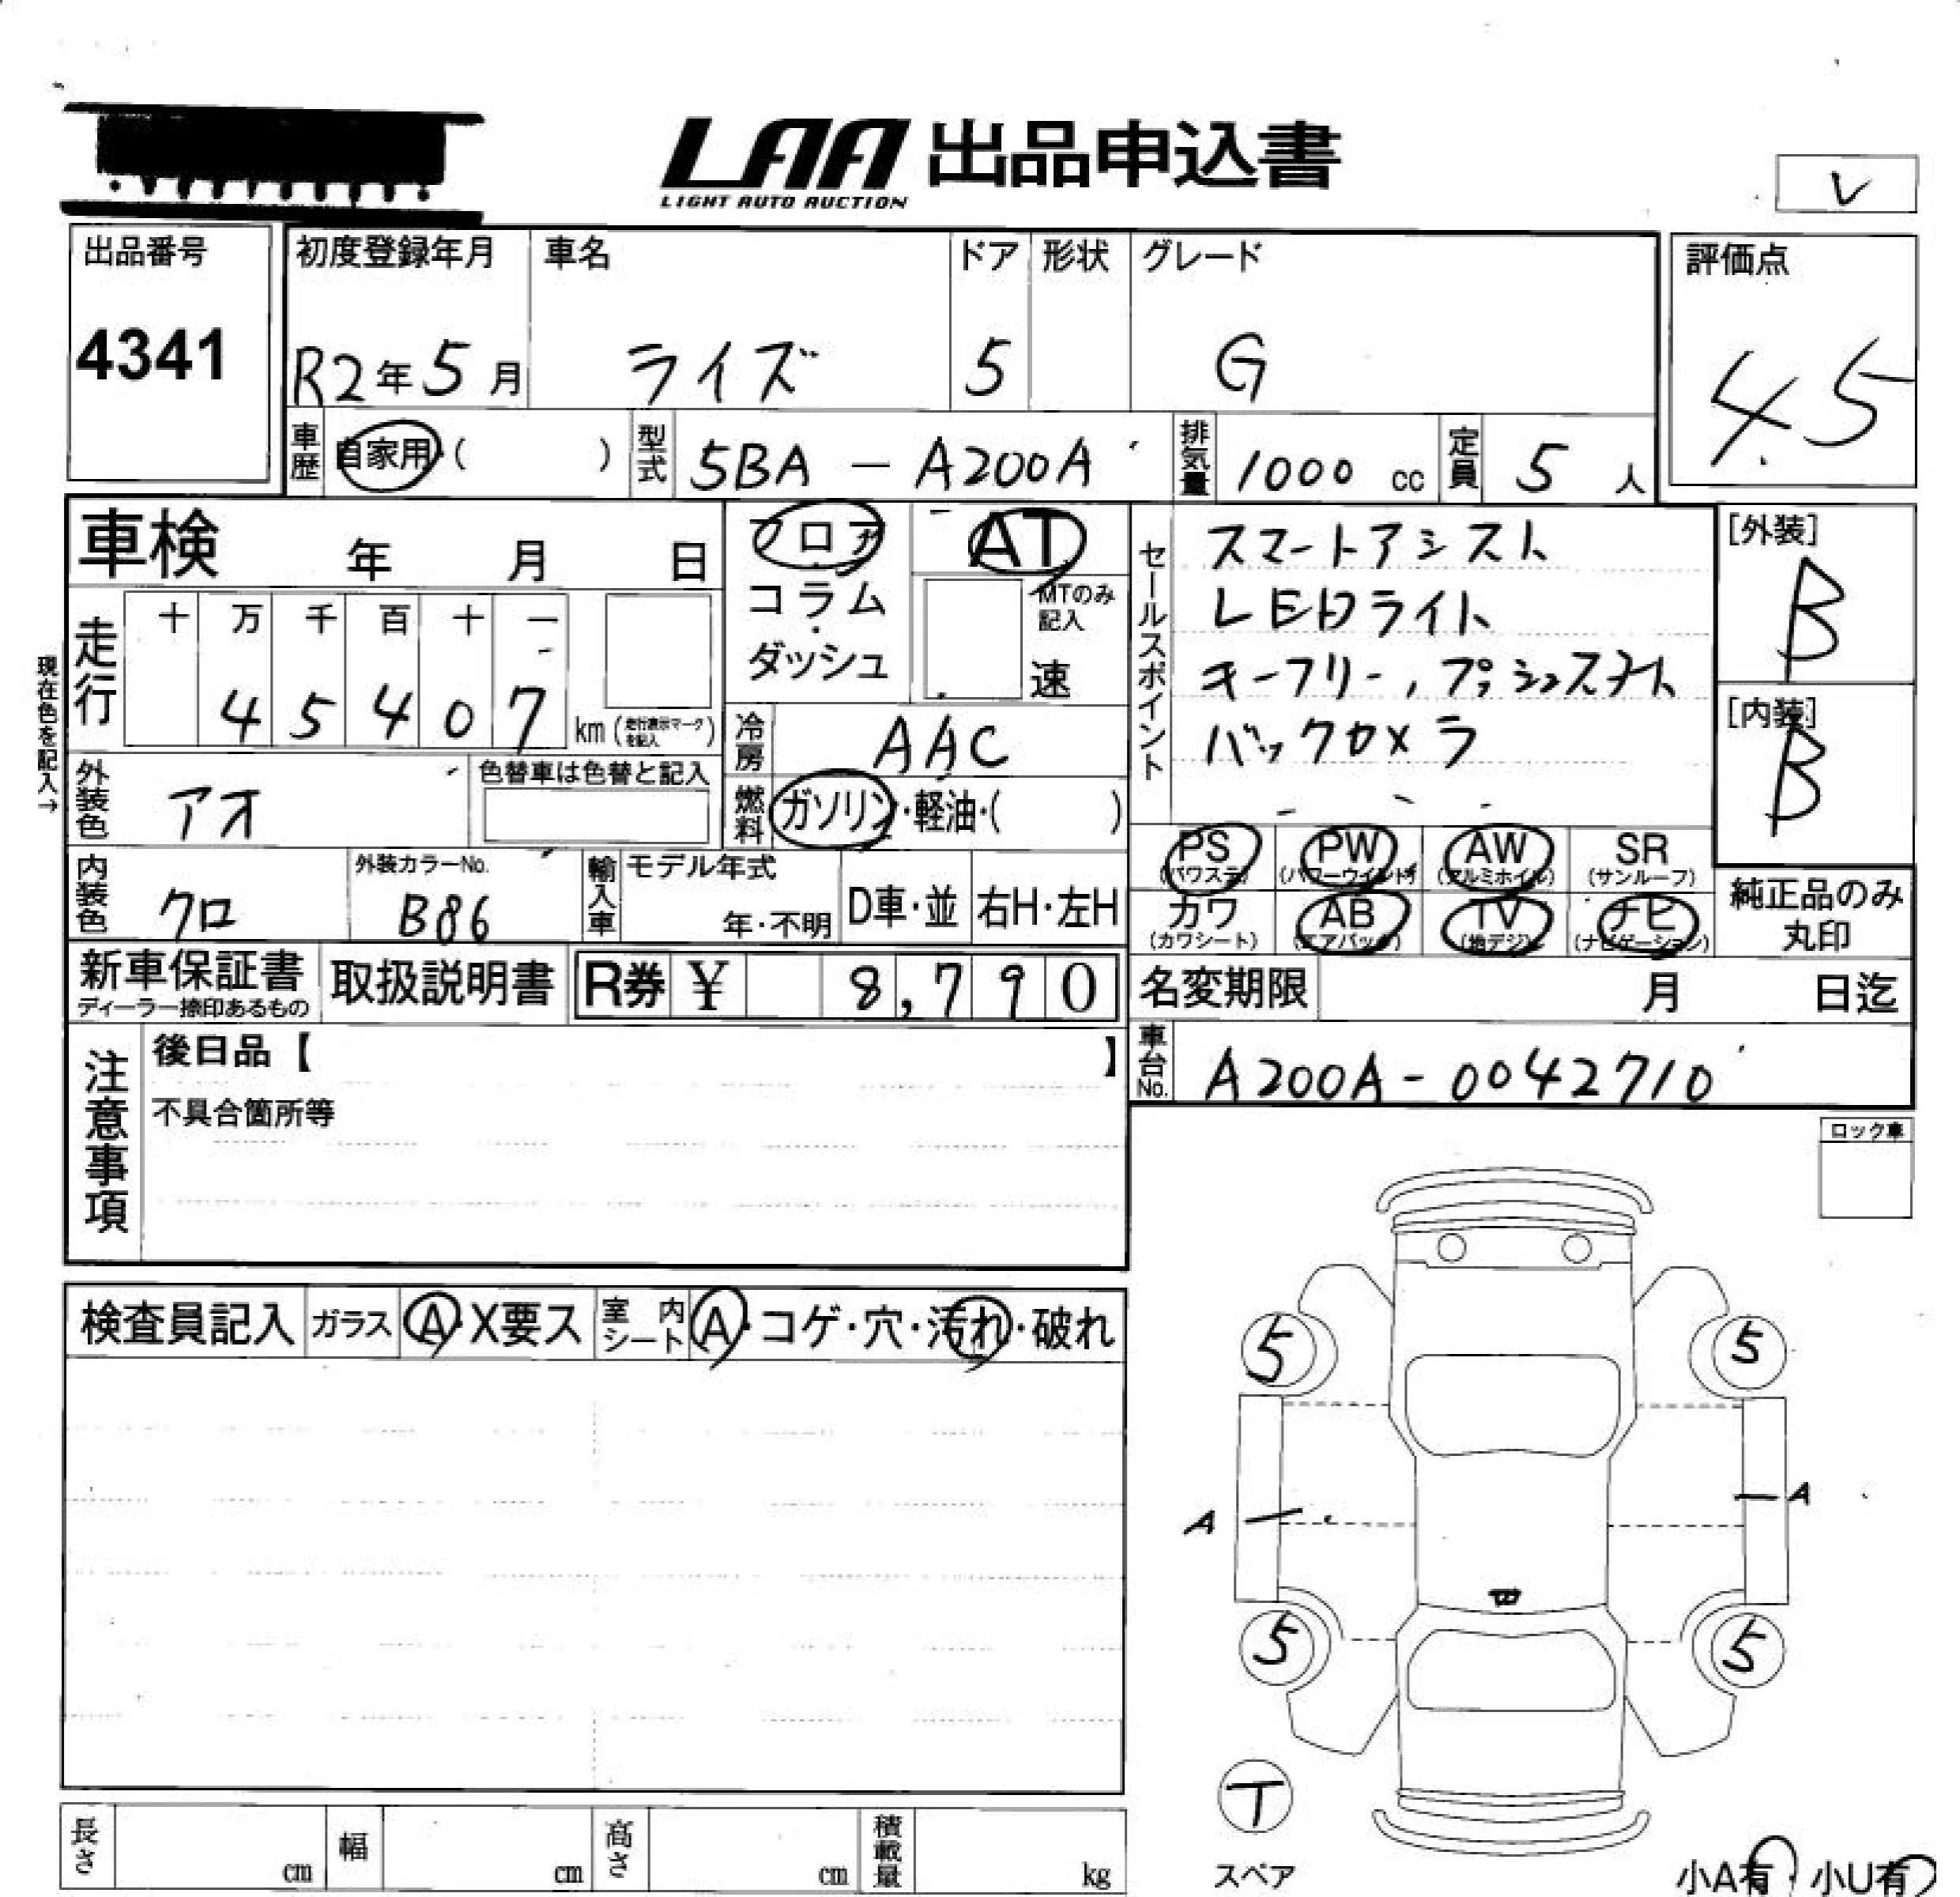 LAA 出品申込書
LIGHT AUTO AUCTION
レ
出品番号
4341
初度登録年月 車名 ドア 形状 グレード
R2年5月 ライズ 5 G
評価点
4.5
車歴 自家用・( ) 型式 5BA - A200A 排気量 1000 cc 定員 5 人
車検 年 月 日
フロア
コラム
・
ダッシュ
AT
MTのみ
記入
速
セールスポイント
スマートアシスト
LEDライト
キーフリー,プッシュスタート
バックカメラ
[外装]
B
[内装]
B
現在色を記入→
走行 十 万 千 百 十 一
4 5 4 0 7 km (走行表示マークを記入)
冷房 AAC
外装色 アオ 色替車は色替と記入
燃料 ガソリン・軽油・( )
内装色 クロ 外装カラーNo. B86
輸入車 モデル年式 年・不明 D車・並 右H・左H
PS (パワステ) PW (パワーウインドウ) AW (アルミホイル) SR (サンルーフ)
カワ (カワシート) AB (エアバッグ) TV (地デジ) ナビ (ナビゲーション)
純正品のみ
丸印
新車保証書
ディーラー捺印あるもの
取扱説明書 R券 ¥ 8,790
名変期限 月 日迄
車台No. A200A-0042710
注意事項
後日品【 】
不具合箇所等
ロック車
検査員記入 ガラス A・X要ス 室内シート A・コゲ・穴・汚れ・破れ
5 5
A A
5 5
T
スペア
小A有 小U有
長さ cm 幅 cm 高さ cm 積載量 kg